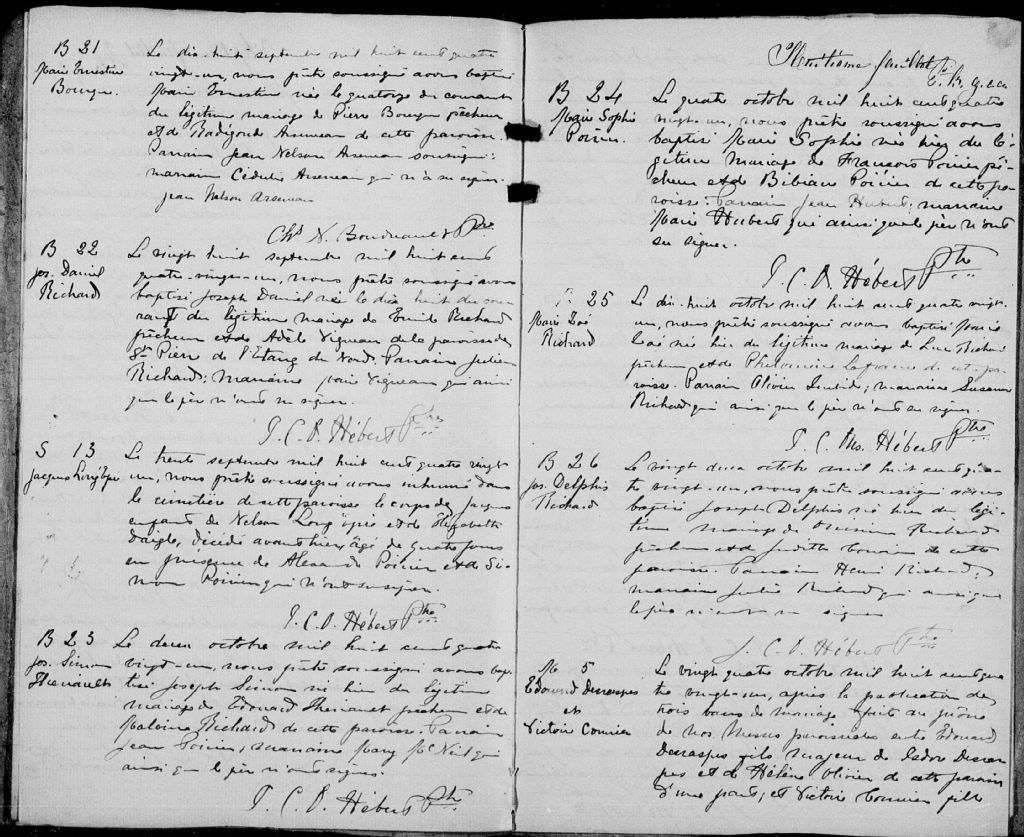 B 21
Marie Ernestine
Bourque.
Le dix-huit septembre mil huit cent quatre
vingt-un, nous prêtre soussigné avons baptisé
Marie Ernestine née le quatorze du courant
du légitime mariage de Pierre Bourque pêcheur
et de Radigonde Arseneau de cette paroisse.
Parrain Jean Nelson Arseneau soussigné;
marraine Cédulie Arseneau qui n'a su signer.
Jean Nelson Arseneau
Chs N. Boudreault Ptre
B 22
Jos. Daniel
Richard
Le vingt huit septembre mil huit cent
quatre-vingt-un, nous prêtre soussigné avons
baptisé Joseph Daniel né le dix huit du cou
rant du légitime mariage de Emile Richard
pêcheur et de Adèle Vigneau de la paroisse de
St Pierre de l'Etang du Nord. Parrain Julien
Richard; marraine Marie Vigneau qui ainsi
que le père n'ont su signer.
J. C. A. Hébert Ptre
S 13
Jacques
Le trente septembre mil huit cent quatre vingt
un, nous prêtre soussigné avons inhumé dans
le cimetière de cette paroisse le corps de Jacques
enfant de Nelson et de Elizabeth
Daigle, décédé avant hier, âgé de quatre jours
en présence de Alexandre Poirier et de Si-
mon Poirier qui n'ont su signer.
J. C. A. Hébert Ptre
B 23
Jos. Simon
Theriault
Le deux octobre mil huit cent quatre
vingt-un, nous prêtre soussigné avons bap-
tisé Joseph Simon né hier du légitime
mariage de Edouard Theriault pêcheur et de
Malvina Richard de cette paroisse. Parrain
Jean Poirier; marraine Mary McNeil qui
ainsi que le père n'ont signer.
J. C. A. Hébert Ptre
Huitième feuillet
B 24
Marie Sophie
Poirier.
Le quatre octobre mil huit cent quatre
vingt-un, nous prêtre soussigné avons
baptisé Marie Sophie née hier du lé-
gitime mariage de François Poirier pê-
cheur et de Bibiane Poirier de cette pa-
roisse. Parrain Jean Hubert; marraine
Marie Hubert qui ainsi que le père n'ont
su signer.
J. C. A. Hébert Ptre
B 25
Marie Zoé
Richard
Le dix-huit octobre mil huit cent quatre vingt-
un, nous prêtre soussigné avons baptisé Marie
Zoé née hier du légitime mariage de Luc Richard
pêcheur et de Philomène Lapierre de cette pa-
roisse. Parrain Olivier; marraine Susanne
Richard qui ainsi que le père n'ont su signer.
J. C. A. Hébert Ptre
B 26
Jos. Delphis
Richard
Le vingt deux octobre mil huit cent qua-
tre vingt-un, nous prêtre soussigné avons
baptisé Joseph Delphis né hier du légi-
time mariage de Richard
pêcheur et de Judith de cette
paroisse. Parrain Henri Richard;
marraine Julie Richard qui ainsi que
le père n'ont su signer
J. C. A. Hébert Ptre
M 5
Edouard Deraspes
et
Victoire Cormier
Le vingt quatre octobre mil huit cent qua-
tre vingt-un, après la publication de
trois bans de mariage faite au prône
de nos Messes paroissiales entre Edouard
Deraspes fils majeur de Isidore Deras-
pes et de Hélène Olivier de cette paroisse
d'une part; et Victoire Cormier fille